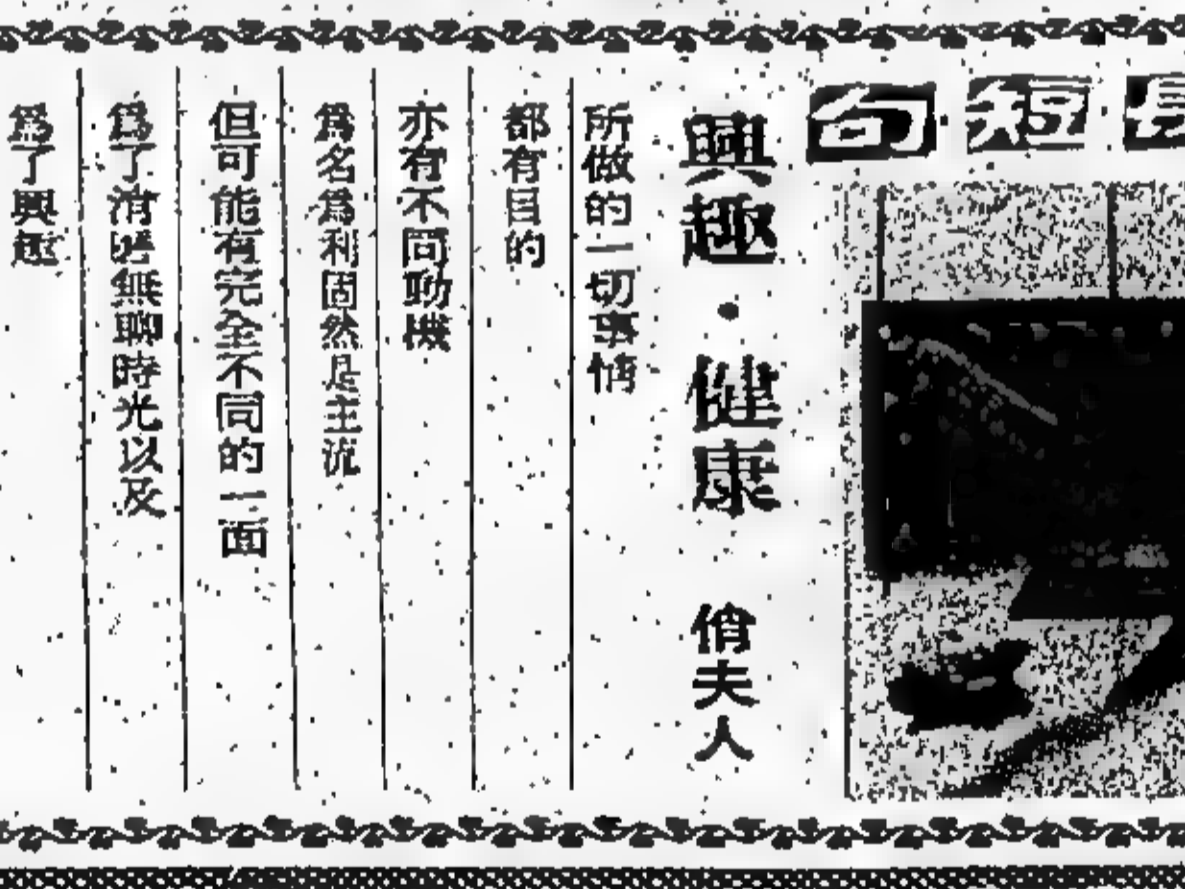 長短句
興趣·健康
俏夫人
所做的一切事情
都有目的
亦有不同動機
爲名爲利固然是主流
但可能有完全不同的一面
爲了消磨無聊時光以及
爲了興趣